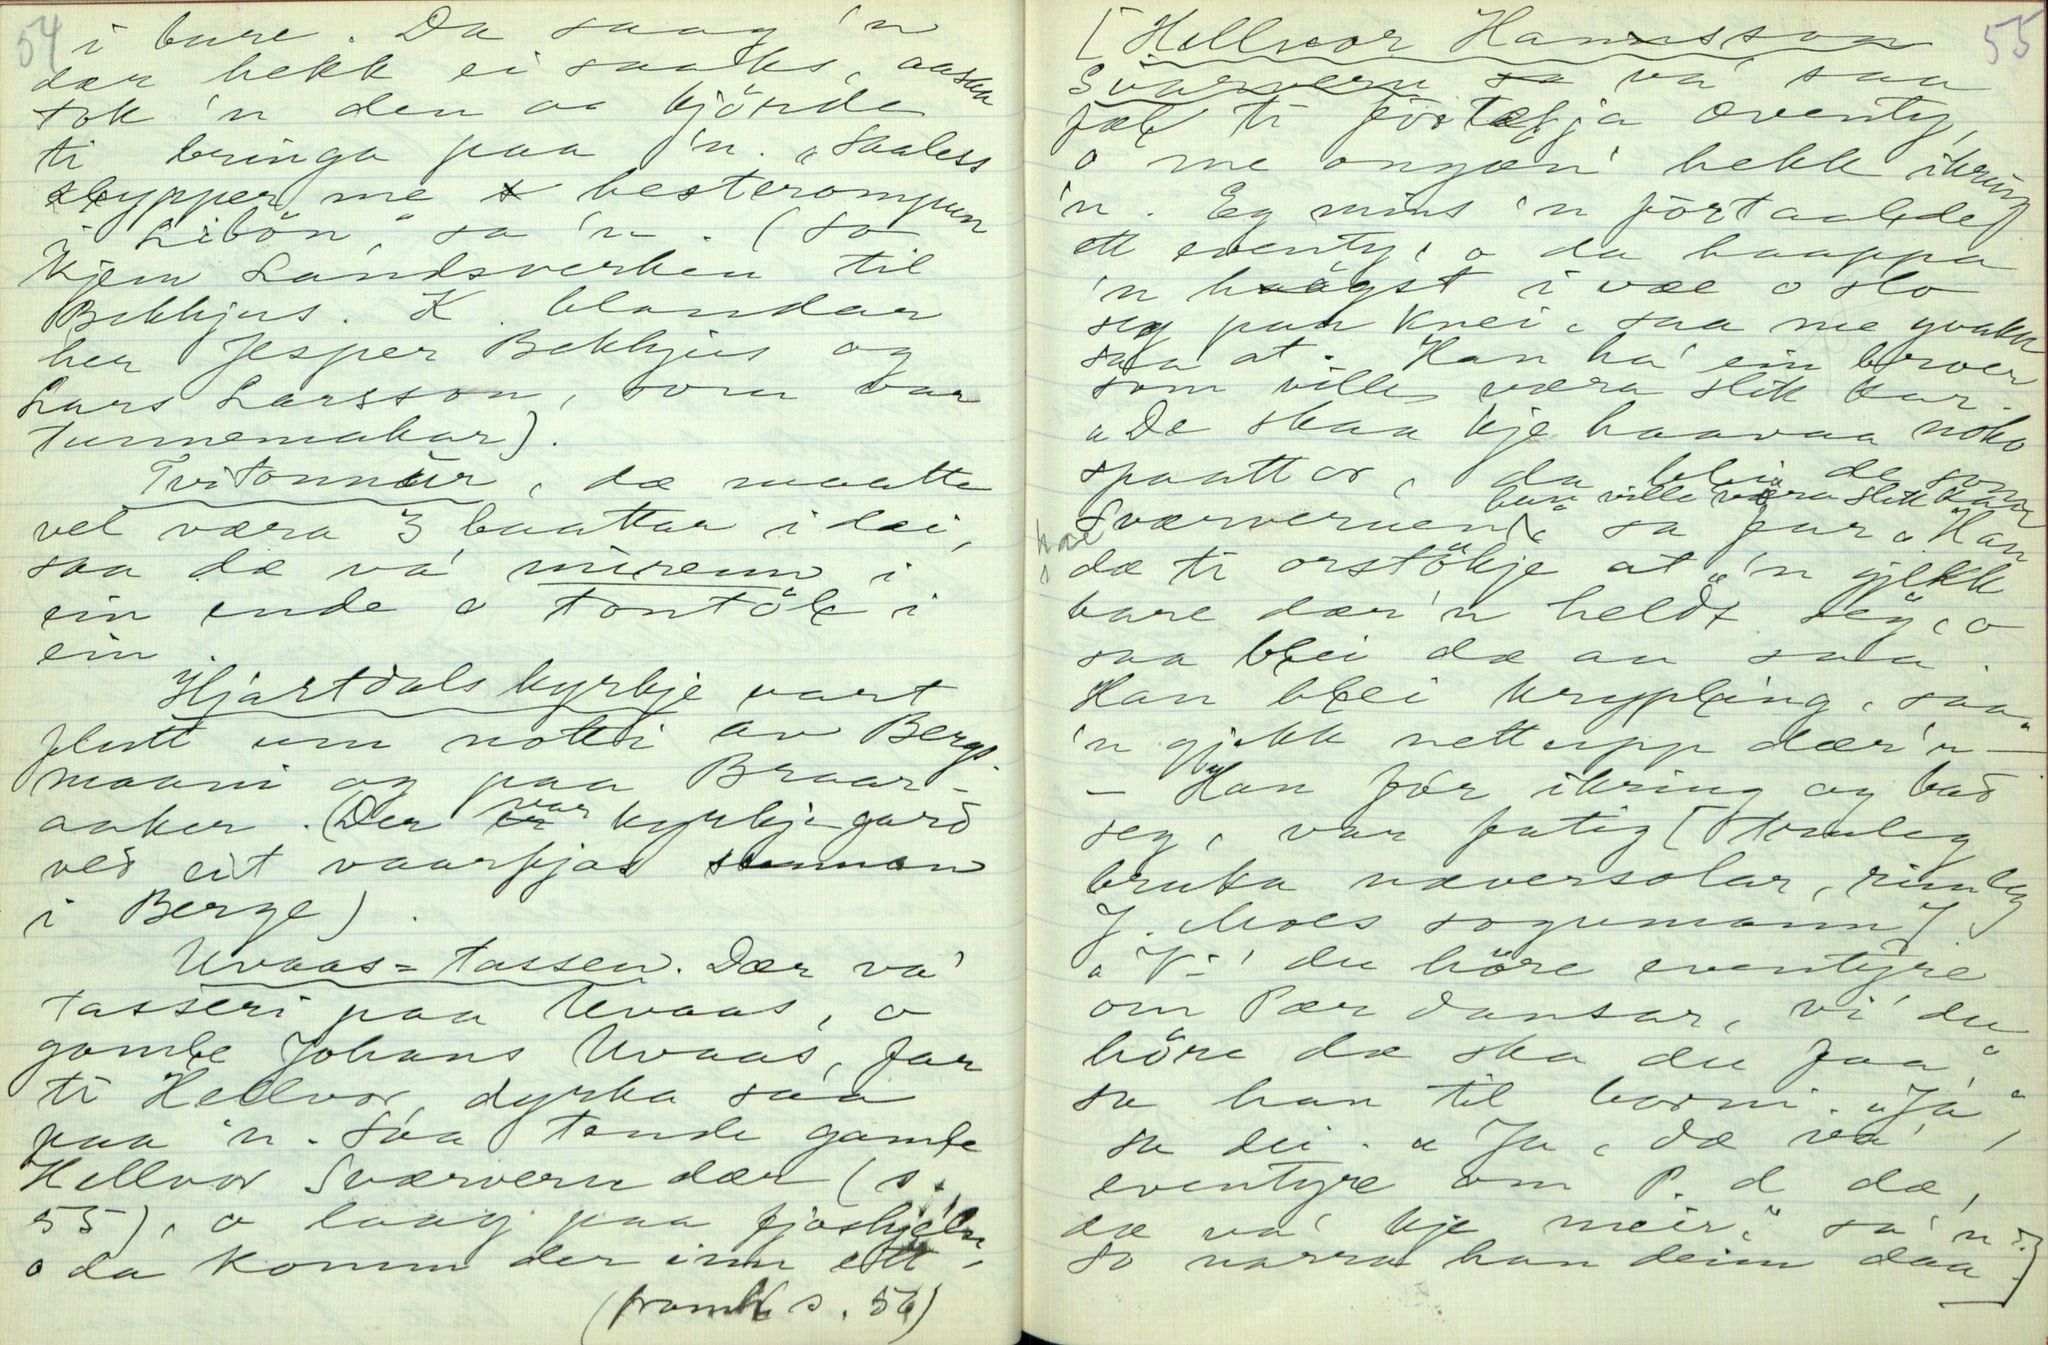 54
i bure. Da saag 'n
dær hekk ei saaks, aassaa
tok 'n den aa kjörde
ti bringa paa 'n. "Saaless
slypper me besterompun
i Libön," sa 'n. (So
kjem Landsverken til
Bekkjus. K. blandar
her Jesper Bekkjus og
Lars Larsson, som var
tunnemakar).
Tritonnur, dæ maatte
vel væra 3 baattar i dei,
saa dæ va' mirenn i
ein ende o tontöl i
ein.
Hjartdalskyrkje vart
flutt um notti av Bergs-
maani og paa Braar-
aaker. (Der var kyrkjegard
ved eit vaarfjøs sunnan
i Berge).
Uvaas-tassen. Dær va'
tasseri paa Uvaas, o
gamle Johans Uvaas, far
ti Hellvor, dyrka saa
paa 'n. Saa tende gamle
Hellvor Sværveren dær (s.
55), o laag paa fjoshjelm
o da komm der inn ett,
(framh. s. 56)
55
[Hellvor Hansson
Sværveren va' saa
fæl ti förtelja eventy,
o me ongan' hekk ikring
'n. Eg mins 'n förtaalde
ett eventy, o da haappa
'n högst i væe o slo
seg paa knei, saa me gvakk
saa at. Han ha' ein broer
som ville væra slik kar.
"De skaa kje haavaa noko
spaatt or, da blei de som
han ville væra slik kar
Sværveruen," sa far. "Han
hae
dæ ti orstökje at 'n gjekk
bare dær 'n heldt seg, o
saa blei dæ an saa.
Han blei krypling, saa
'n gjekk nettupp dær 'n"—
— Han fór ikring og bad
seg, var fatig [truleg
bruka næversolar, rimleg
J. Moes sogumann]
"Vi' du höre eventyre
om Pær dansar, vi' du
höre dæ ska du faa"
sa han til borni. "Ja",
sa dei. "Ja, dæ va'
eventyre om P. d dæ,
dæ va' kje meir," sa 'n.
So narra han deim daa.]